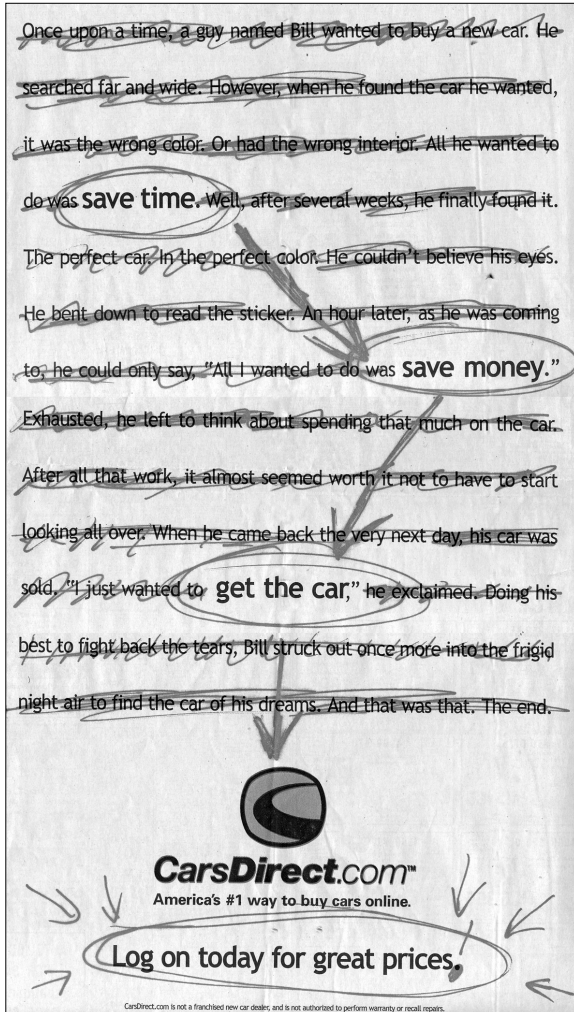 Once upon a time, a guy named Bill wanted to buy a new car. He
searched far and wide. However, when he found the car he wanted,
it was the wrong color. Or had the wrong interior. All he wanted to
do was save time. Well, after several weeks, he finally found it.
The perfect car. In the perfect color. He couldn't believe his eyes.
He bent down to read the sticker. An hour later, as he was coming
to, he could only say, “All I wanted to do was save money.”
Exhausted, he left to think about spending that much on the car.
After all that work, it almost seemed worth it not to have to start
looking all over. When he came back the very next day, his car was
sold. “I just wanted to get the car,” he exclaimed. Doing his
best to fight back the tears, Bill struck out once more into the frigid
night air to find the car of his dreams. And that was that. The end.
CarsDirect.com™
America's #1 way to buy cars online.
Log on today for great prices.
CarsDirect.com is not a franchised new car dealer, and is not authorized to perform warranty or recall repairs.